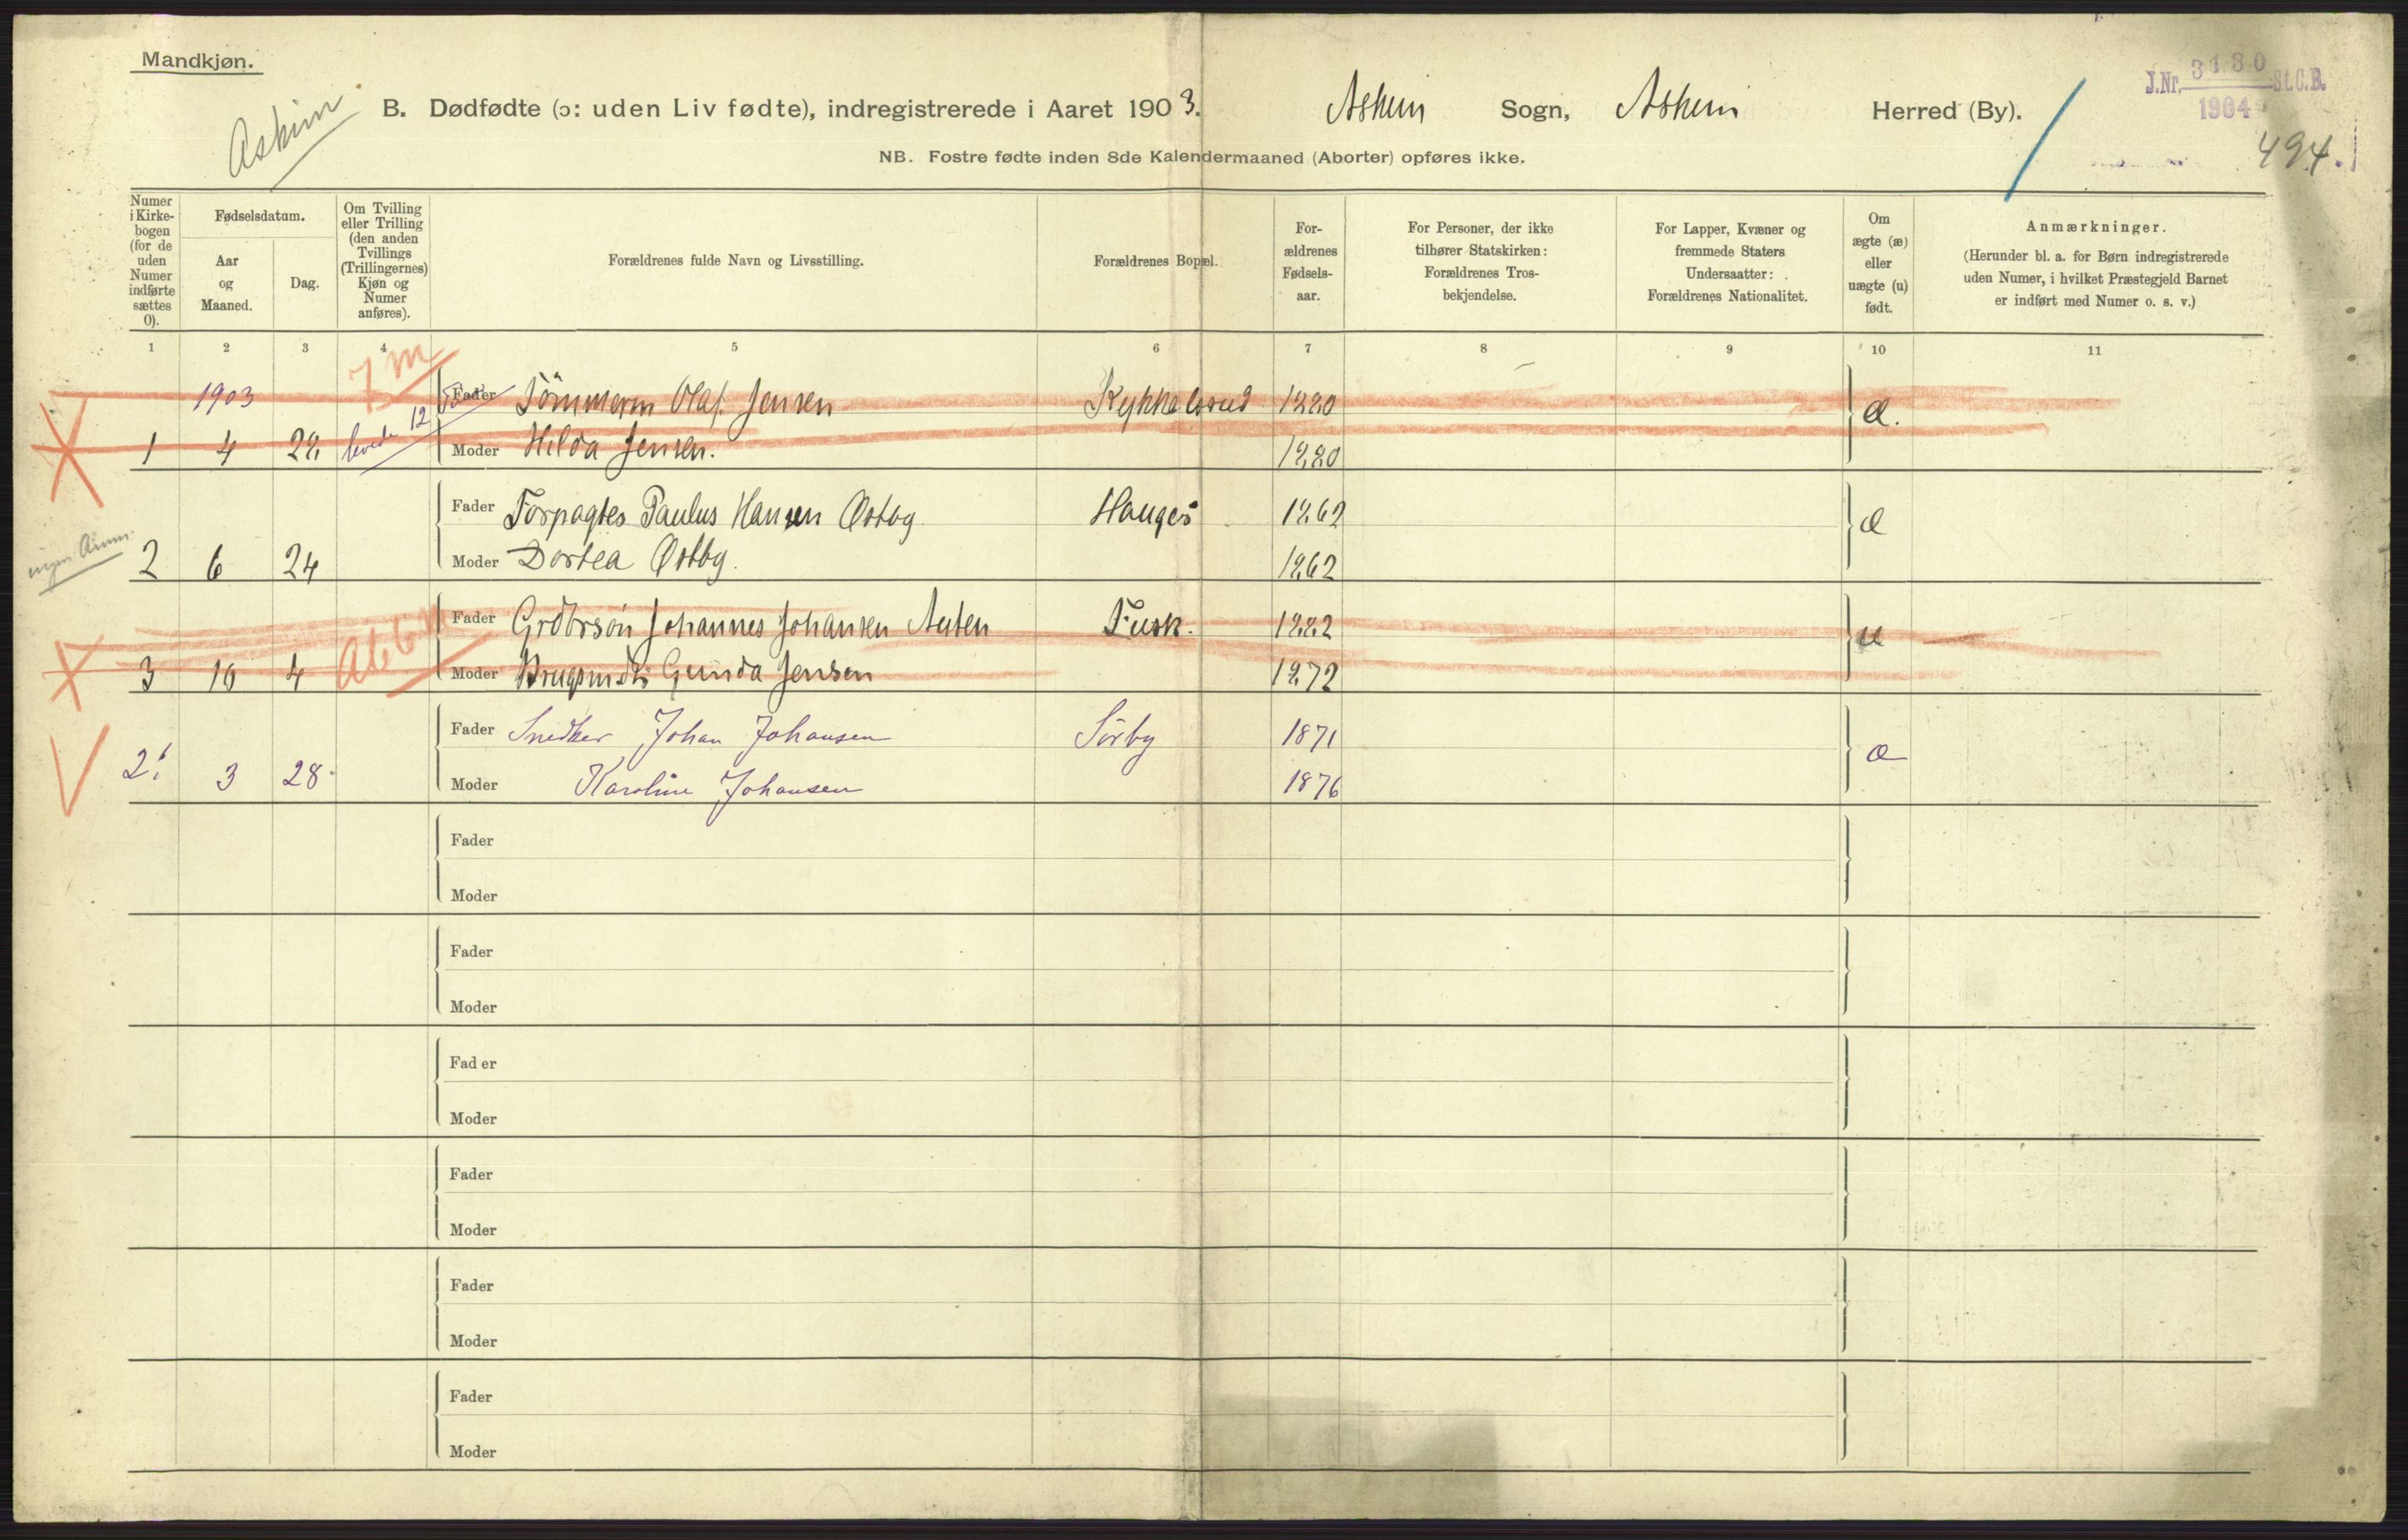 Mandkjøn.
Askim
B. Dødfødte (ɔ: uden Liv fødte), indregistrerede i Aaret 1903. Askim Sogn, Askim Herred (By).
J.Nr. 3180 St.C.B.
1904
494.
NB. Fostre fødte inden 8de Kalendermaaned (Aborter) opføres ikke.
Numer i Kirkebogen (for de uden Numer indførte sættes 0).
Fødselsdatum.
Aar og Maaned.
Dag.
Om Tvilling eller Trilling (den anden Tvillings (Trillingernes) Kjøn og Numer anføres).
Forældrenes fulde Navn og Livsstilling.
Forældrenes Bopæl.
Forældrenes Fødselsaar.
For Personer, der ikke tilhører Statskirken: Forældrenes Trosbekjendelse.
For Lapper, Kvæner og fremmede Staters Undersaatter: Forældrenes Nationalitet.
Om ægte (æ) eller uægte (u) født.
Anmærkninger.
(Herunder bl. a. for Børn indregistrerede uden Numer, i hvilket Præstegjeld Barnet er indført med Numer o. s. v.)
1 2 3 4 5 6 7 8 9 10 11
7 m
1903 Fader Tömmerm Olaf Jensen Kykkelsrud 1880 æ.
1 4 29 levede 12 Moder Hilda Jensen. 1880
Fader Forpagter Paulus Hansen Østby Hauger 1862 æ
2 6 24 Moder Dortea Østby. 1862
Fader Grdbrsön Johannes Johansen Fusk. 1882 u
3 10 4 Moder Gunda Jensen 1872
Fader Snedker Johan Johansen Sörby 1871 æ
2! 3 28 Moder Karoline Johansen 1876
Fader
Moder
Fader
Moder
Fader
Moder
Fader
Moder
Fader
Moder
Fader
Moder